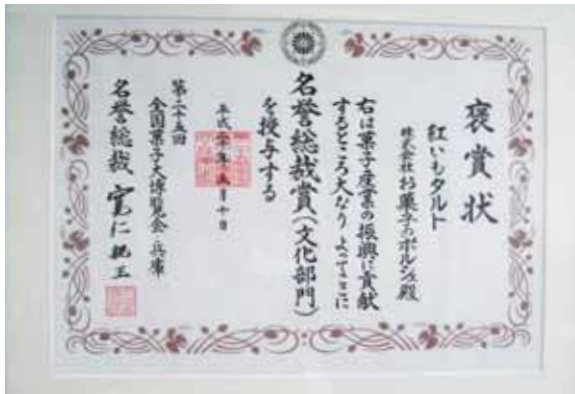 褒賞状
紅いもタルト
株式会社お菓子のポルシェ殿
右は菓子産業の振興に貢献
するところ大なり よってここに
名誉総裁賞(文化部門)
を授与する
平成二十年五月十日
第二十五回
全国菓子大博覧会・兵庫
名誉総裁 寬仁親王